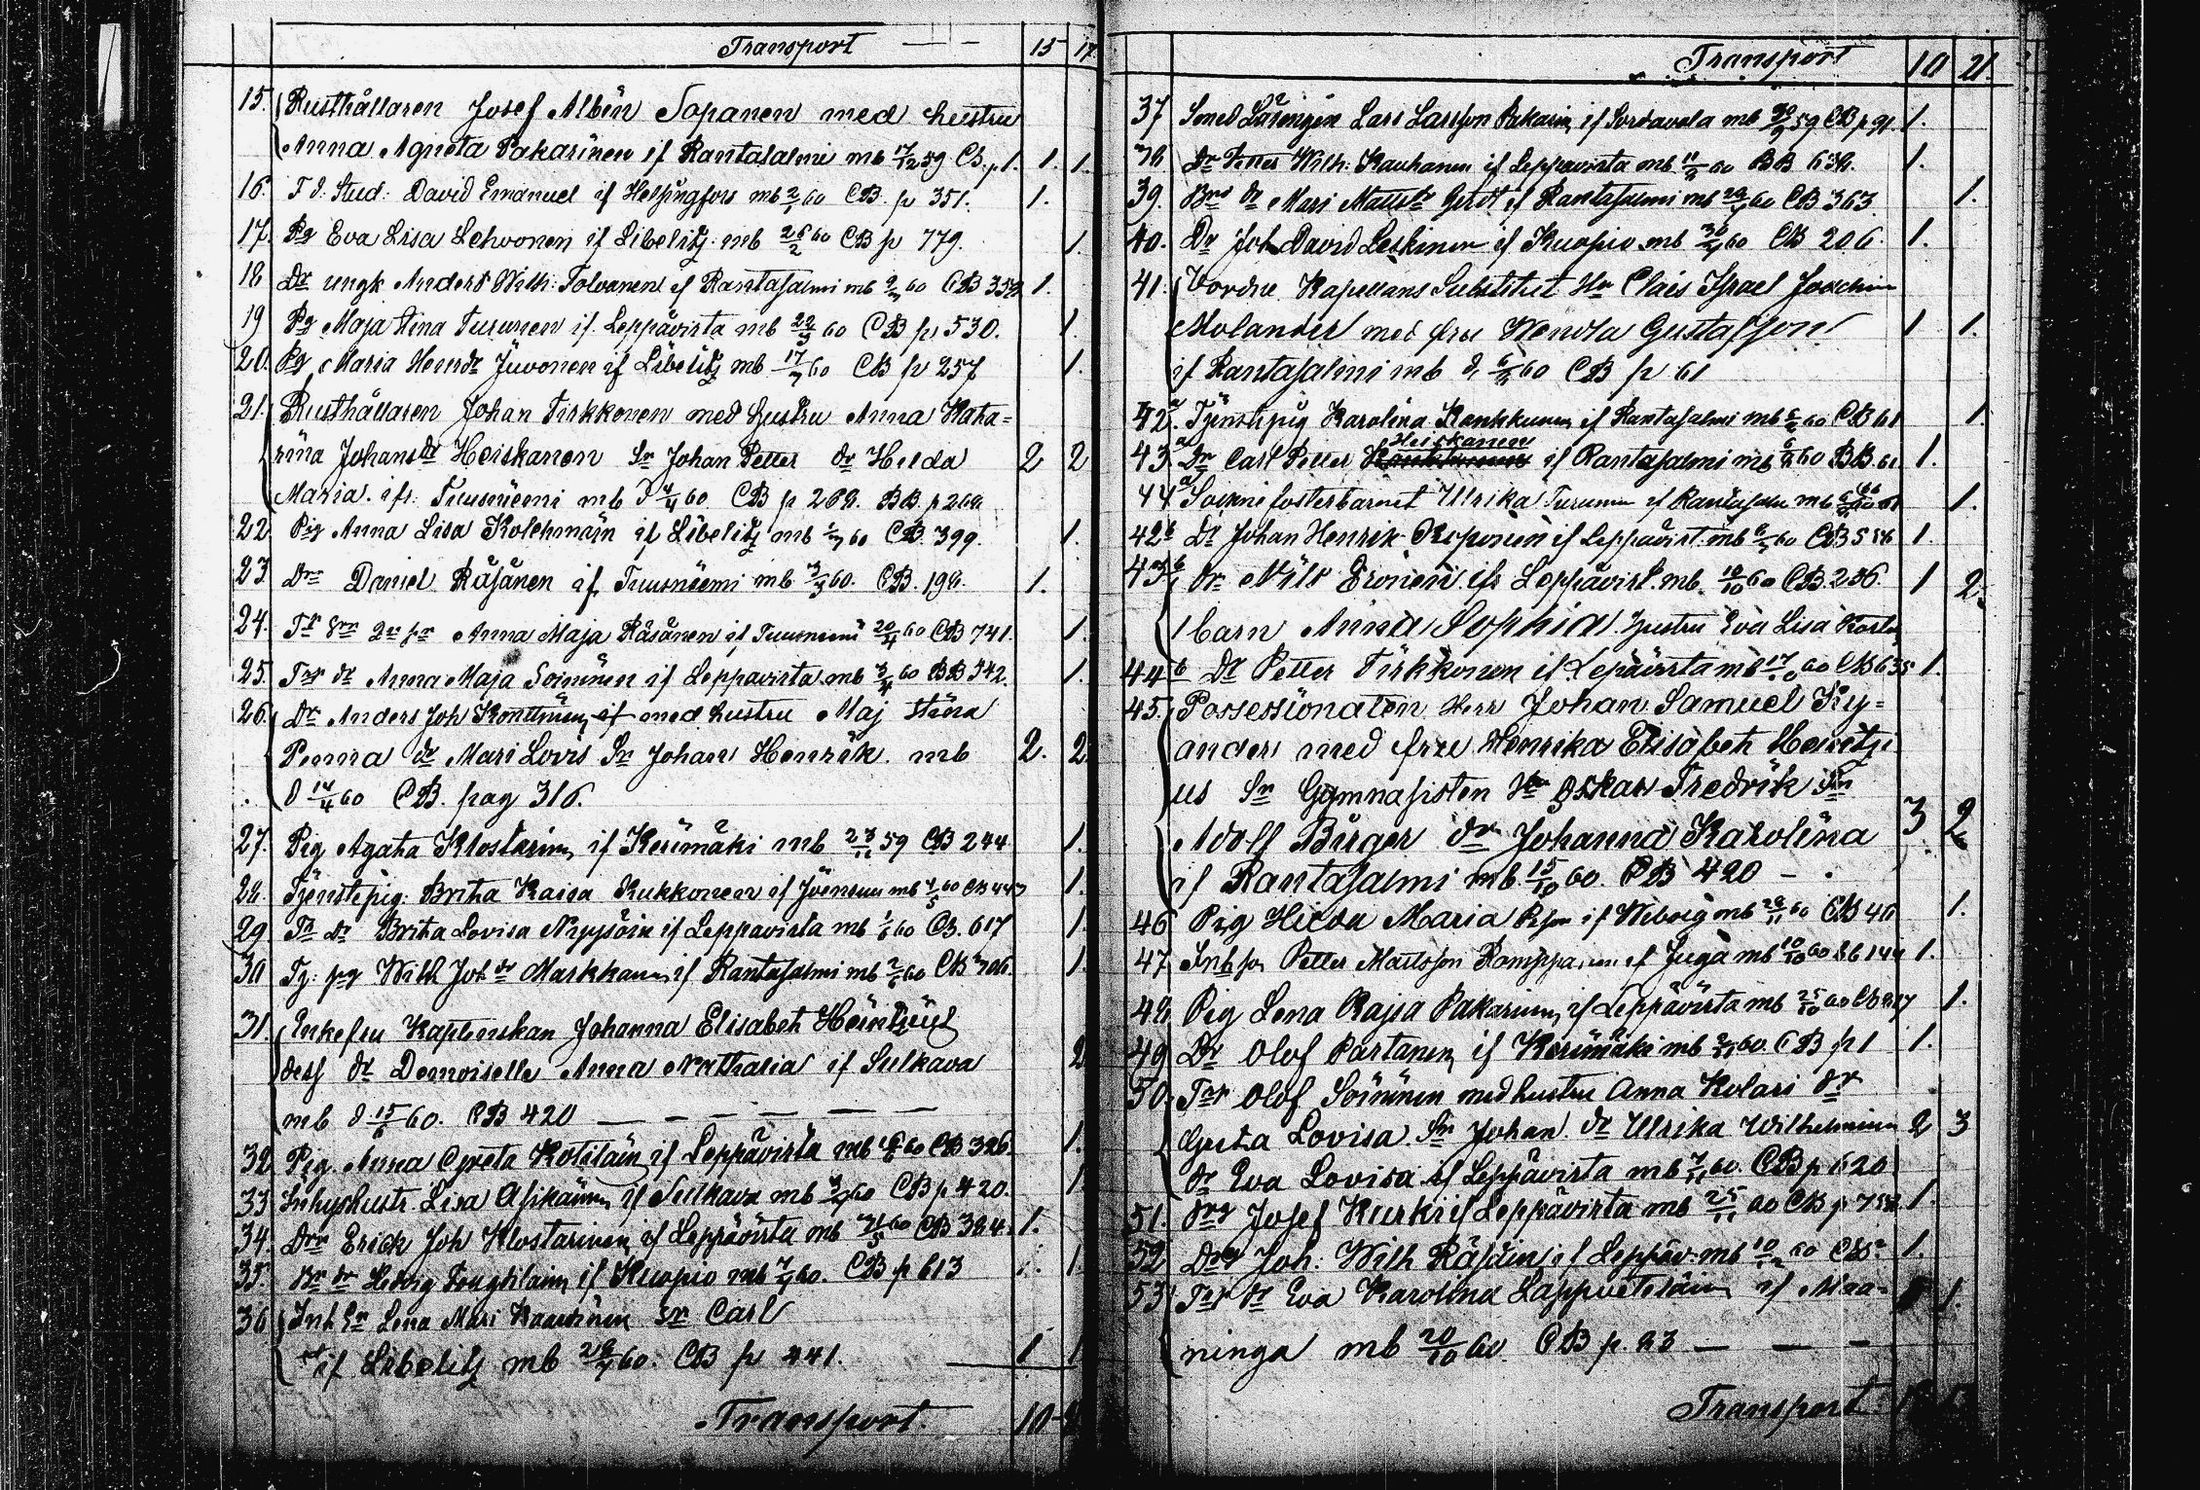 Transport — 15 17
15. Rusthållaren Josef Albin Sopanen med hustru
Anna Agneta Pakarinen if Rantasalmi mb 17/12 59 CB. p 1. 1. 1.
16. F d. Stud: David Emanuel if Helsingfors mb 2/1 60 CB. p 351. 1.
17. Pg Eva Lisa Lehvonen if Libelitz mb 26/2 60 CB p 779. 1.
18 Dr ungk Anders Wilh: Tolvanen if Rantasalmi mb 60 CB 1.
19 Pg Maja Stina Turunen if Leppävirta mb 22/3 60 CB p 530. 1.
20. Pg Maria Henrdr Juvonen if Libelitz mb 17/3 60 CB p 257 1.
21. Rusthållaren Johan Tirkkonen med hustru Anna Kata=
rina Johansdr Heiskanen Sn Johan Petter dr Hilda 2 2
Maria. ifr. Tuusniemi mb d 4/4 60 CB p 268. BB. p 268
22 Pig Anna Lisa Kolehmain if Libelitz mb 60 CB. 399. 1.
23 Drr Daniel Räsänen if Tuusniemi mb 3/4 60. CB. 198. 1.
24. Anna Maja Räsänen if Tuusniemi 20/4 60 CB 741. 1.
25. Trp dr Anna Maja Soininen if Leppävirta mb 3/4 60 BB 342. 1.
26. Dr Anders Joh Konttinen if med hustru Maj Stina
Penna dr Mari Lovis Sn Johan Henrik. mb 2. 2
d 14/4 60 CB. pag 316.
27. Pig Agata Klostarinen if Kerimäki mb 23/11 59 CB 244 1.
28. Tjenstepig: Brita Kaisa Kukkonen if Joensuu mb 4/5 60 CB 1.
29 Tr dr Brita Lovisa Nyyssöin if Leppävirta mb 1/6 60 CB. 617 1.
30 Tj: pg Wilh Joh dr Markkanen if Rantasalmi mb 2/6 60 CB 306. 1.
31. Enkefru Kaplenskan Johanna Elisabeth Heintzius
dess dr Demoiselle Anna Nathalia if Sulkava 2
mb d 15/6 60. CB 420 — — — — —
32 Pig. Anna Greta Kotilain if Leppävirta mb 60 CB 326. 1.
33 Inhyshustr. Lisa Asikainen if Sulkava mb 60 CB p 420. 1
34. Drr Erick Joh Klostarinen if Leppävirta mb 31/5 60 CB 384. 1.
35. Br dr Hedvig Toughilain if Kuopio mb 60. CB p 613 1.
36 Inh Er Lena Mari Kaartinen Sr Carl
if Libelitz mb 28/7 60. CB p 441. 1 1
Transport. 10
Transport 10 21
37 Smed Lärlingen Lars Larsson Pakarin if Sordavala mb 59 CB p 91. 1.
38 Dr Petter Wilh: Kauhanen if Leppävirta mb 11/8 60 BB 638. 1.
39. Mari Mattsdr if Rantasalmi mb 60 CB 363. 1.
40. Dr Joh David Leskinen if Kuopio mb 60 CB 206. 1.
41. Vordne Kapellans Substitut Hr Clais Israel Joachim
Molander med fru Wendla Gustafsson 1 1.
if Rantasalmi mb d. 60 CB p 61
42a. Tjenstepig Karolina Kankkunen if Rantasalmi mb 60 CB 61 1.
Heiskanen
43a Dr Carl Petter if Rantasalmi mb 60 BB 61 1.
44a fosterbarnet Ulrika Turunen if Rantasalmi mb 60 1.
42b Dr Johan Henrik Reponen if Leppävirt: mb 60 CB 556 1
43b Dr Nils Eronen ifr Leppävirt. mb. 18/10 60 CB. 236. 1 2.
1 barn Anna Sophia hustru Eva Lisa
44b Dr Petter Tirkkonen if Lepävirta mb 17/10 60 CB 635 1.
45. Possessionaten Herr Johan Samuel Ky=
ander med fru Henrika Elisabeth Heintzi
us Sn Gymnasisten Hr Oskar Fredrik Sn 3. 2
Adolf Birger dr Johanna Karolina
if Rantasalmi mb 15/10 60. CB 420 — .
46 Pig Hilda Maria if Wiborg mb 60 CB 46 1.
47 Inh sn Petter Mattsson Romppanen if Juga mb 10/10 60 BB 144 1.
48 Pig Lena Kajsa Pakarinen if Leppävirta mb 25/10 60 CB 1.
49 Dr Olof Partanen if Kerimäki mb 60. CB p 1 1.
50. Trp Olof Soininen med hustru Anna Kolari dr
Greta Lovisa Sn Johan. dr Ulrika Wilhelmina 2 3
dr Eva Lovisa if Leppävirta mb 60. CB p 620
51. Drg Josef Kurki if Leppävirta mb 25/11 60 CB p 1.
52 Drg Joh: Wilh Räsäin if Leppäv: mb 60 CB 1.
53 Trp dr Eva Karolina Lappveteläin if Maa= 1.
ninga mb 20/10 60. CB p. 93 — — —
Transport